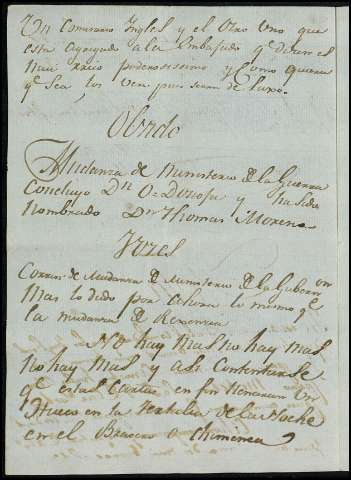 Un Comisario Ingles y el Otro uno que
esta agregado a la Embajada qe dicen es
mui rico poderosissimo y como quiera
qe sea los Ven pues seran de Luxo.
Obrdo
Mudanza de Ministerio de la Guerra
Concluyo Dn O-Donoju y ha sido
Nombrado Dn Thomas Moreno
Jues
Corren de Mudanza de Ministerio de la Gobernon
Mas lo dudo por ahora lo mismo qe
la mudanza de Regencia
No hay mas no hay mas
no hay mas y asi Contentarse
qe estas Cartas en fin llenaran un
Hueco en la tertulia de la Noche
en el Brasero o chiminea